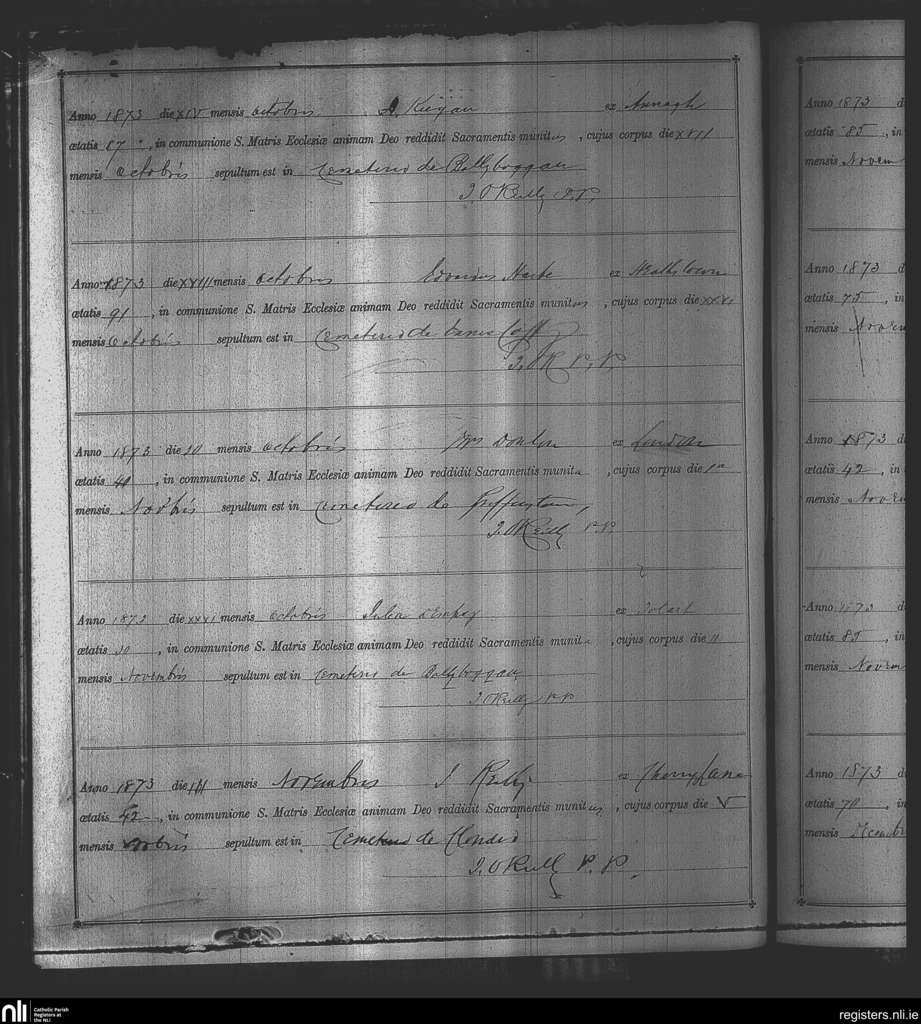 Anno 1873 die XIV mensis Octobris ex Annagh
ætatis 87, in communione S. Matris Ecclesiæ animam Deo reddidit Sacramentis munitus, cujus corpus die XVII
mensis Octobris sepultum est in Cemeterio de Ballyboggan
J. O'Reilly P.P.
Anno 1873 die XXIII mensis Octobris Edvardus ex
ætatis 91, in communione S. Matris Ecclesiæ animam Deo reddidit Sacramentis munitus, cujus corpus die XXXI
mensis Octobris sepultum est in Cemeterio de
J. O'R P. P.
Anno 1873 die 30 mensis Octobris Mrs Donlon ex London
ætatis 40, in communione S. Matris Ecclesiæ animam Deo reddidit Sacramentis munita, cujus corpus die 1a
mensis Novbris sepultum est in Cemeterio de
J. O'Reilly P.P.
Anno 1873 die XXXI mensis Octobris ex
ætatis 30, in communione S. Matris Ecclesiæ animam Deo reddidit Sacramentis munita, cujus corpus die 11
mensis Novembris sepultum est in Cemeterio de Ballyboggan
J. O'Reilly P.P.
Anno 1873 die III mensis Novembris J Reilly ex Cherry Lane
ætatis 42, in communione S. Matris Ecclesiæ animam Deo reddidit Sacramentis munitus, cujus corpus die V
mensis Novbris sepultum est in Cemeterio de
J. O'Reilly P. P.
Anno 1873 d
ætatis 85, in
mensis Novem
Anno 1873 d
ætatis 75, in
mensis Novem
Anno 1873 d
ætatis 42, in
mensis Novem
Anno 1873 d
ætatis 85, in
mensis Novem
Anno 1873 d
ætatis 70, in
mensis
nli Catholic Parish
Registers at
the NLI
registers.nli.ie